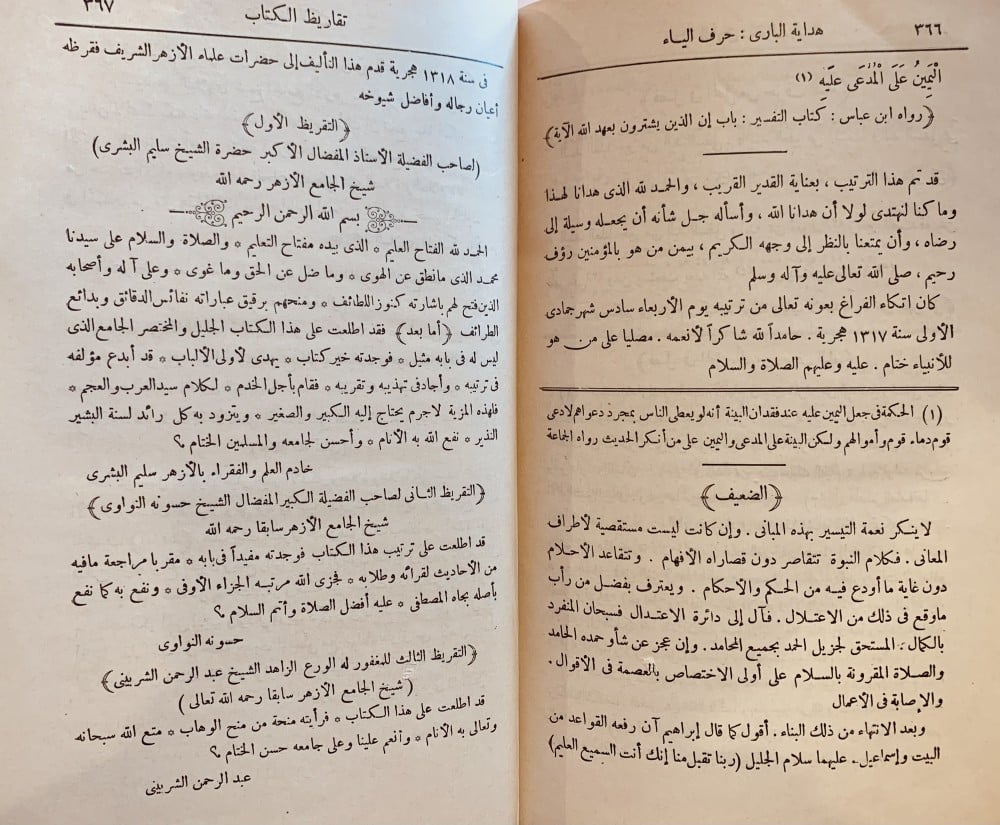 ٣٦٦
هداية البارى : حرف الياء
الْيَمِينُ عَلَى الْمُدَّعَى عَلَيْهِ (١)
﴿رواه ابن عباس : كتاب التفسير : باب إن الذين يشترون بعهد الله الآية﴾
قد تم هذا الترتيب ، بعناية القدير القريب ، والحمد لله الذى هدانا لهذا
وما كنا لنهتدى لولا أن هدانا الله ، وأسأله جل شأنه أن يجعله وسيلة إلى
رضاه ، وأن يمتعنا بالنظر إلى وجهه الكريم ، بيمن من هو بالمؤمنين رؤف
رحيم ، صلى الله تعالى عليه وآله وسلم
كان اتكاء الفراغ بعونه تعالى من ترتيبه يوم الأربعاء سادس شهر جمادى
الأولى سنة ١٣١٧ هجرية . حامداً لله شاكراً لأنعمه . مصليا على من هو
للأنبياء ختام . عليه وعليهم الصلاة والسلام
(١) الحكمة فى جعل اليمين عليه عند فقدان البينة أنه لو يعطى الناس بمجرد دعواهم لادعى
قوم دماء قوم وأموالهم ولكن البينة على المدعى واليمين على من أنكر الحديث رواه الجماعة
﴿الضعيف﴾
لا ينكر نعمة التيسير بهذه المبانى . وإن كانت ليست مستقصية لأطراف
المعانى . فكلام النبوة تتقاصر دون قصاراه الأفهام . وتتقاعد الأحلام
دون غاية ما أودع فيه من الحكم والأحكام . ويعترف بفضل من رأب
ماوقع فى ذلك من الاعتلال . فآل إلى دائرة الاعتدال فسبحان المنفرد
بالكمال . المستحق لجزيل الحمد بجميع المحامد . وإن عجز عن شأو حمده الحامد
والصلاة المقرونة بالسلام على أولى الاختصاص بالعصمة فى الأقوال .
والإصابة فى الأعمال
وبعد الانتهاء من ذلك البناء . أقول كما قال إبراهيم آن رفعه القواعد من
البيت وإسماعيل . عليهما سلام الجليل (ربنا تقبل منا إنك أنت السميع العليم)
تقاريظ الكتاب
٣٦٧
فى سنة ١٣١٨ هجرية قدم هذا التأليف إلى حضرات علماء الأزهر الشريف فقرظه
أعيان رجاله وأفاضل شيوخه
﴿التقريظ الأول﴾
(لصاحب الفضيلة الأستاذ المفضال الأكبر حضرة الشيخ سليم البشرى)
شيخ الجامع الأزهر رحمه الله
بسم الله الرحمن الرحيم
الحمد لله الفتاح العليم * الذى بيده مفتاح التعليم * والصلاة والسلام على سيدنا
محمد الذى مانطق عن الهوى * وما ضل عن الحق وما غوى * وعلى آله وأصحابه
الذين فتح لهم باشارته كنوز اللطائف * ومنحهم برقيق عباراته نفائس الدقائق وبدائع
الطرائف ﴿أما بعد﴾ فقد اطلعت على هذا الكتاب الجليل والمختصر الجامع الذى
ليس له فى بابه مثيل * فوجدته خير كتاب * يهدى لأولى الألباب * قد أبدع مؤلفه
فى ترتيبه * وأجاد فى تهذيبه وتقريبه * فقام بأجل الخدم * لكلام سيد العرب والعجم *
فلهذه المزية لاجرم يحتاج إليه الكبير والصغير * ويتزود به كل رائد لسنة البشير
النذير * نفع الله به الأنام * وأحسن لجامعه والمسلمين الختام ؟
خادم العلم والفقراء بالأزهر سليم البشرى
﴿التقريظ الثانى لصاحب الفضيلة الكبير المفضال الشيخ حسونه النواوى﴾
شيخ الجامع الأزهر سابقا رحمه الله
قد اطلعت على ترتيب هذا الكتاب فوجدته مفيداً فى بابه * مقربا مراجعة مافيه
من الأحاديث لقرائه وطلابه * فجزى الله مرتبه الجزاء الأوفى * ونفع به كما نفع
بأصله بجاه المصطفى * عليه أفضل الصلاة وأتم السلام ؟
حسونه النواوى
﴿التقريظ الثالث للمغفور له الورع الزاهد الشيخ عبد الرحمن الشربينى﴾
(شيخ الجامع الأزهر سابقا رحمه الله تعالى)
قد اطلعت على هذا الكتاب * فرأيته منحة من منح الوهاب * متع الله سبحانه
وتعالى به الأنام * وأنعم علينا وعلى جامعه حسن الختام ؟
عبد الرحمن الشربينى